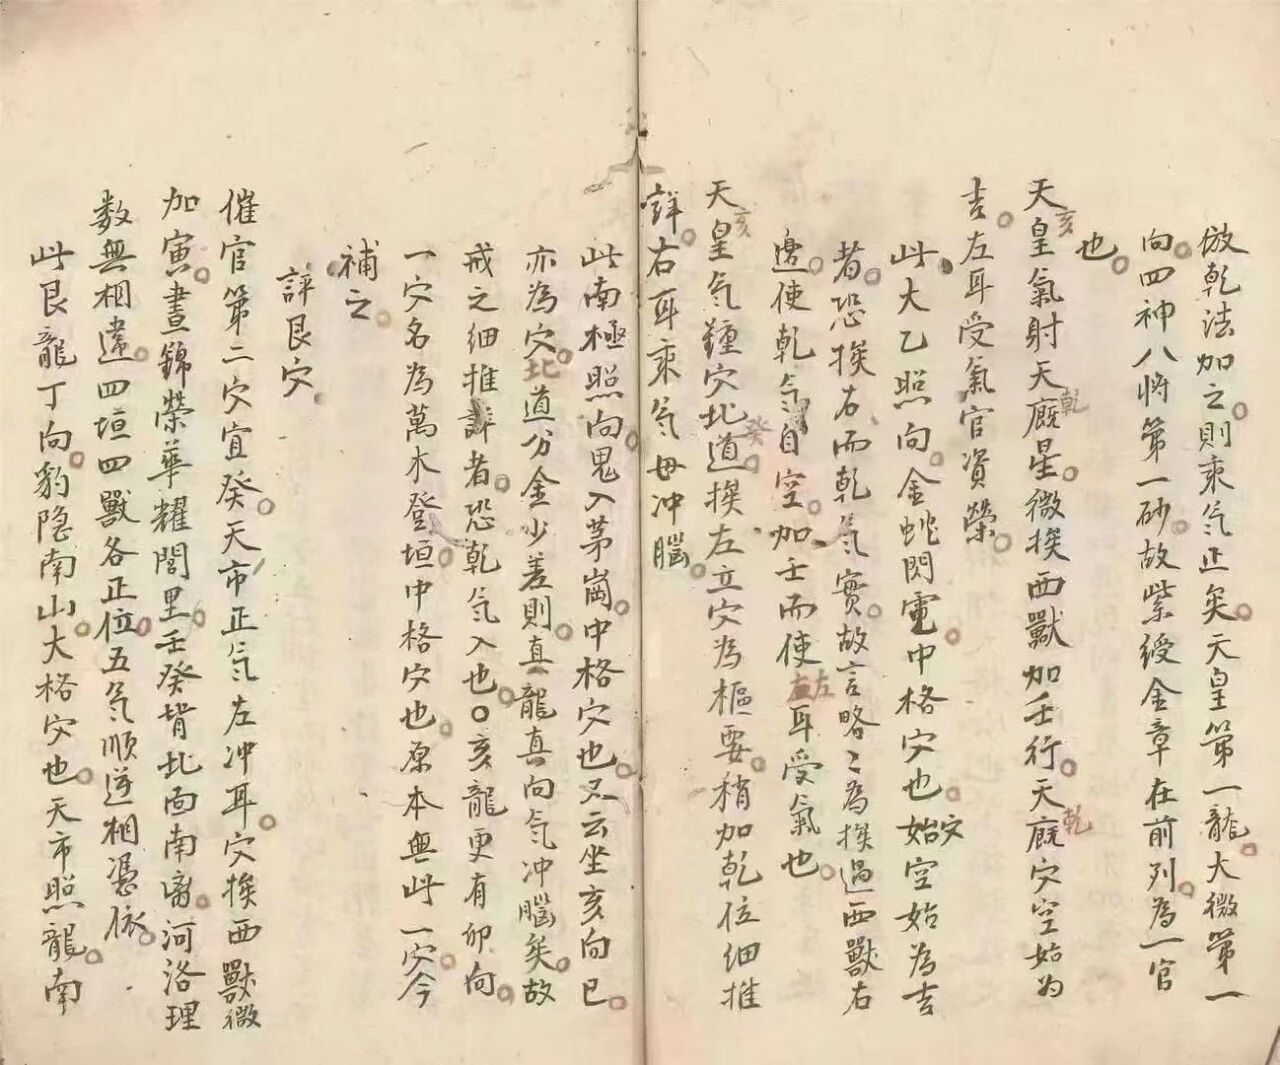 倣乾法加之則乘气正矣天皇第一龍大微第一
向四神八將第一砂故紫綬金章在前列為一官
也
天皇氣射天廐星微挨西獸加壬行天廐穴空始为
亥
乾
乾
吉左耳受氣官資榮
此大乙照向金蛇閃電中格穴也始空始為吉
穴
者恐挨右而乾气實故言略〻為挨過西獸右
邊使乾气自空加壬而使左耳受氣也
左
天皇气鍾穴北道挨左立穴為樞要稍加乾位細推
亥
癸
詳右耳乘气毋冲腦
此南極照向鬼入茅崗中格穴也又云坐亥向巳
亦為穴北道分金少差則真龍真向气冲腦矣故
戒之細推詳者恐乾气入也〇亥龍更有卯向
一穴名為萬木登垣中格穴也原本無此一穴今
補之
評艮穴
催官第二穴宜癸天市正气左冲耳穴挨西獸微
加寅晝錦榮華耀閭里壬癸背北面南离河洛理
数無相違四垣四獸各正位五气順逆相憑依
此艮龍丁向豹隐南山大格穴也天市照龍南